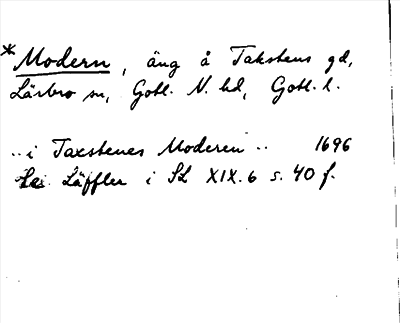 * Modern, äng å Takstens gd,
Lärbro sn, Gotl. N. hd, Gotl. l.
.. i Taxstenes Moderen .. 1696
Se Läffler i SL XIX.6 s. 40 f.